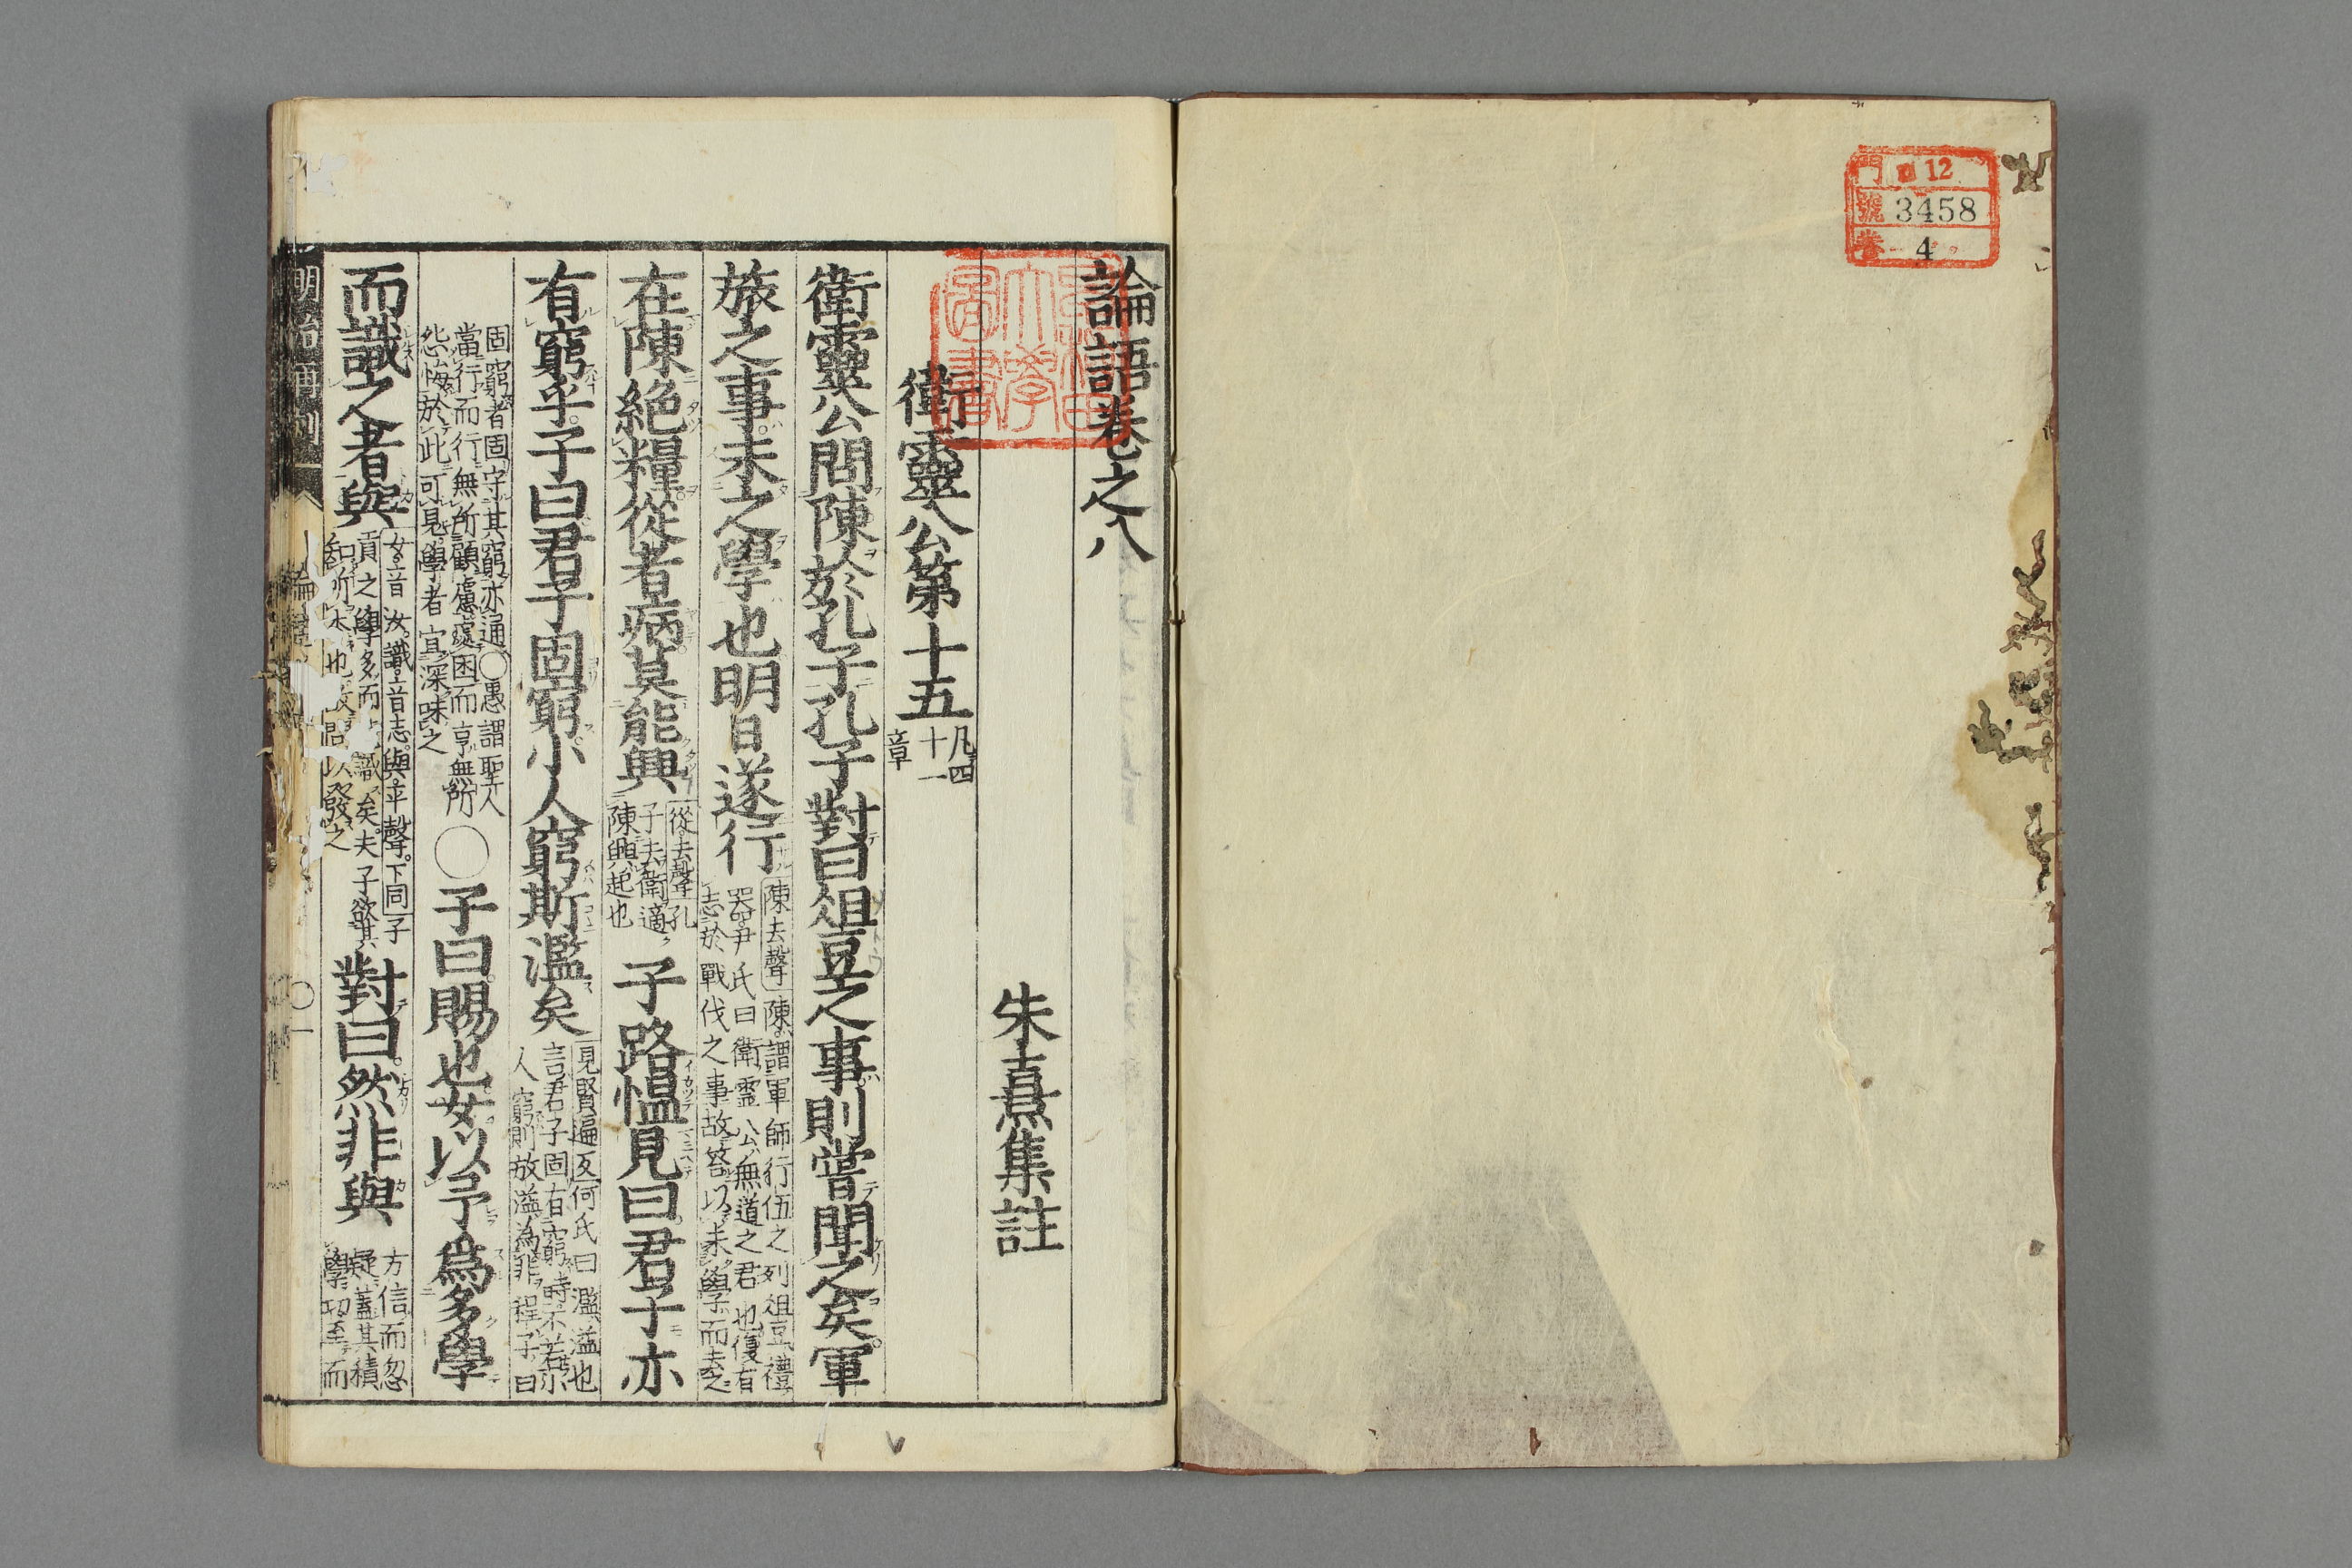 門 口 12
號 3458
卷 4
論語卷之八
朱熹集註
衛靈公第十五 凡四
十一
章
衛靈公問陳於孔子孔子對曰俎豆之事則嘗聞之矣軍
旅之事未之學也明日遂行
陳去聲陳謂軍師行伍之列俎豆禮
器尹氏曰衛靈公無道之君也復有
志於戰伐之事故答以未學而去之
在陳絕糧從者病莫能興
從去聲孔
子去衛適
陳興起也
子路慍見曰君子亦
有窮乎子曰君子固窮小人窮斯濫矣
見賢遍反何氏曰濫溢也
言君子固有窮時不若小
人窮則放溢為非程子曰
固窮者固守其窮亦通○愚謂聖人
當行而行無所顧慮處困而亨無所
怨悔於此可見學者宜深味之
○子曰賜也女以予爲多學
而識之者與
女音汝識音志與平聲下同子
貢之學多而識矣夫子欲其
知所本也故問以發之
對曰然非與
方信而忽
疑蓋其積
學功至而